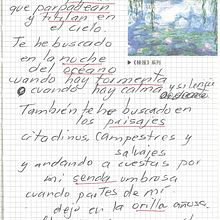 que parpadean
y titilan en
el cielo.
Te he buscado
en la noche
del océano
cuando hay tormenta
o cuando hay calma y silencio
También te he buscado en
los paisajes
citadinos, campestres y
salvajes
y andando a cuestas por
mi senda umbrosa
cuando partes de mí
dejo en la orilla añosa